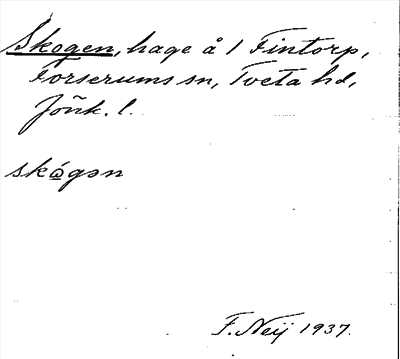 Skogen, hage å 1 Fintorp,
Forserums sn, Tveta hd,
Jönk. l.
skógən
F. Neij 1937.